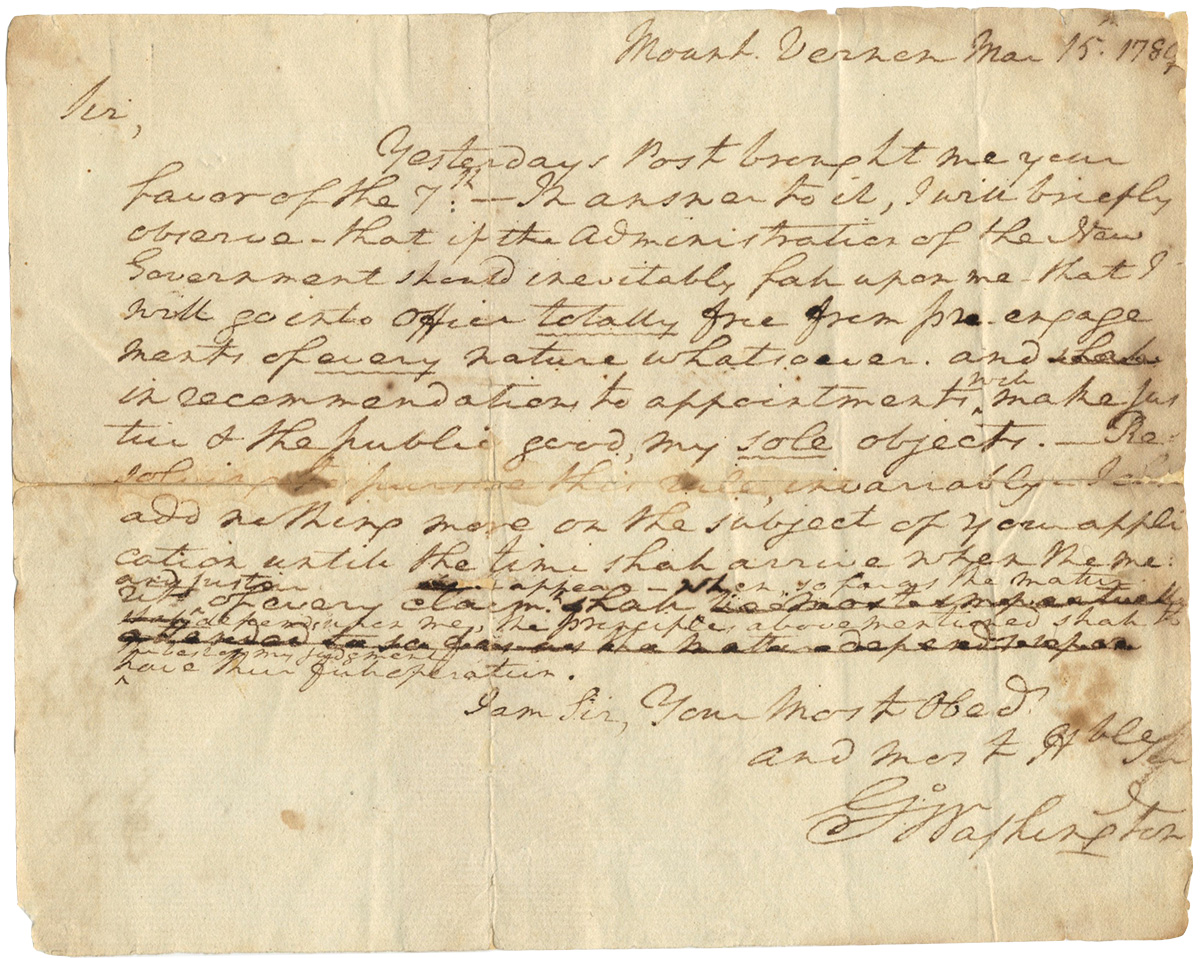 Mount Vernon Mar 15th 1789
Sir,
Yesterdays Post brought me your
favor of the 7th. — In answer to it, I will briefly
observe – that if the Administration of the New
Government should inevitably fall upon me – that I
will go into Office totally free from pre-engage
ments of every nature whatsoever. and shall
in recommendations to appointments will make jus
tice & the public good, my sole objects. — Re-
solving to pursue this rule, invariably – I
add nothing more on the subject of your appli
cation until the time shall arrive when the me:
and justice appear – when, so far as the matter
rits of every claim shall
depends upon me, the principles above mentioned shall
so far as the matter depends upon
my judgment
have their full operation.
I am Sir, Your Most Obedt
and most Hble Ser
Go Washington